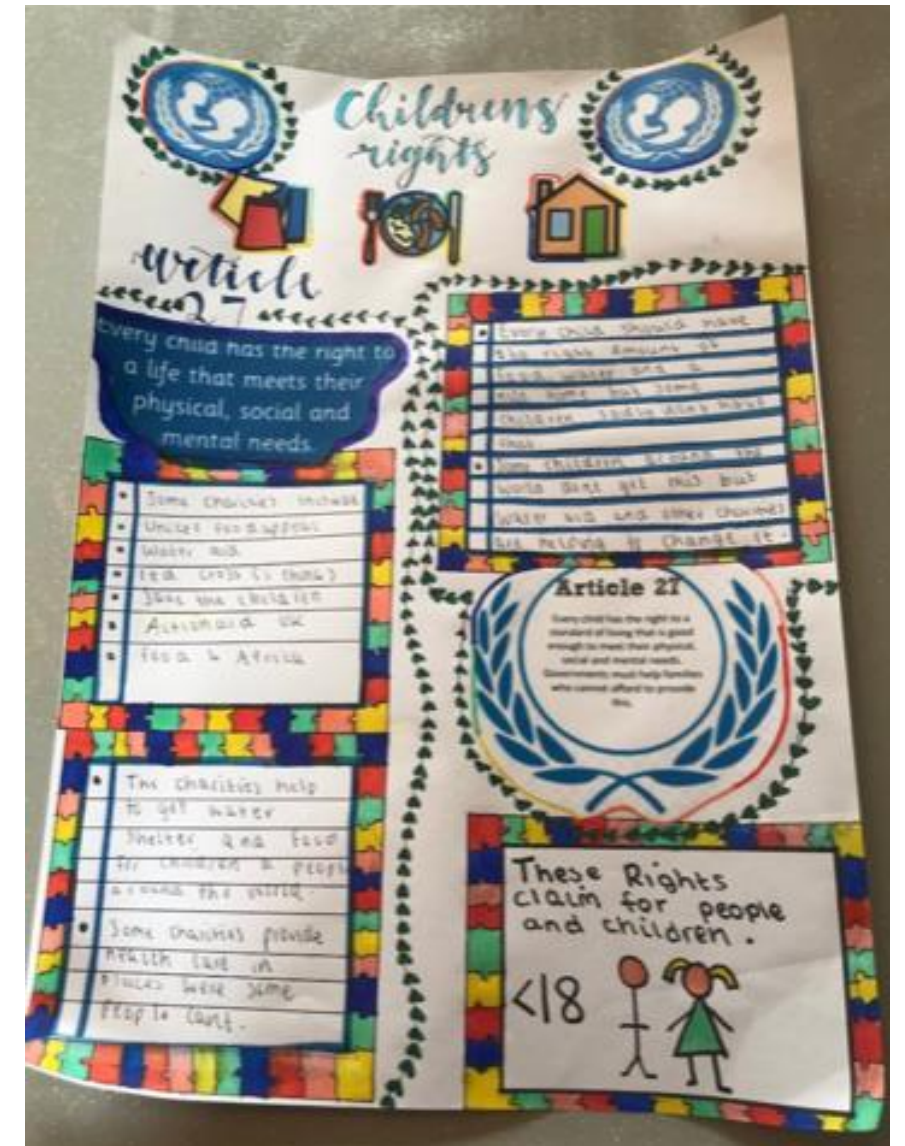 Childrens
rights
Article
27
Every child has the right to
a life that meets their
physical, social and
mental needs.
Some charities include
Unicef food appeal
Water aid
Save the children
Actionaid UK
Food 4 Africa
The charities help
to get water
Shelter and food
for children & people
around the world.
Some charities provide
health care in
places were some
people cant.
Every child should have
the right amount of
food, water and a
home but some
children sadly dont have
that
Some children around the
world dont get this but
Water aid and other charities
are helping to change it.
Article 27
Every child has the right to a
standard of living that is good
enough to meet their physical,
social and mental needs.
Governments must help families
who cannot afford to provide
this.
These Rights
claim for people
and children.
<18